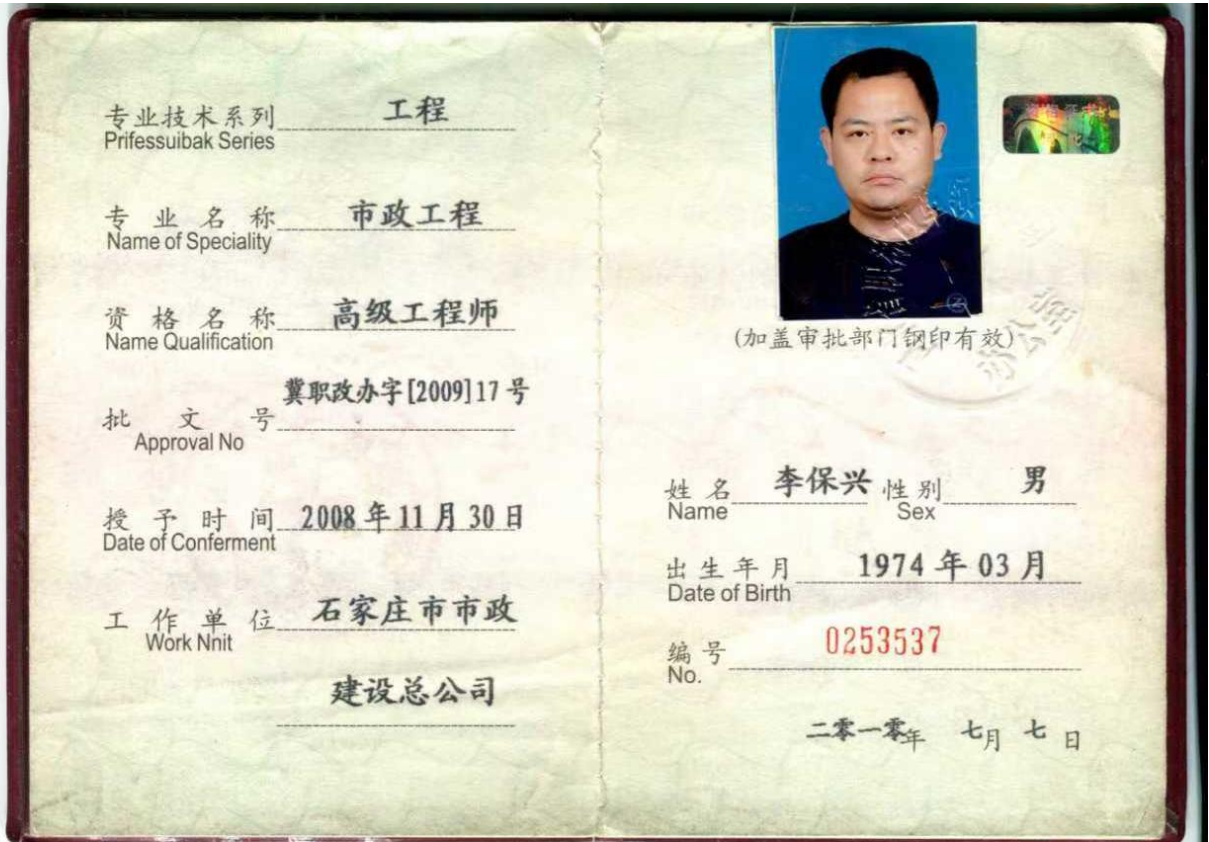 专业技术系列 工程
Prifessuibak Series
专业名称 市政工程
Name of Speciality
资格名称 高级工程师
Name Qualification
冀职改办字[2009]17号
批文号
Approval No
授予时间 2008年11月30日
Date of Conferment
工作单位 石家庄市市政
Work Nnit
建设总公司
(加盖审批部门钢印有效)
姓名 李保兴 性别 男
Name Sex
出生年月 1974年03月
Date of Birth
编号 0253537
No.
二零一零年 七月 七日